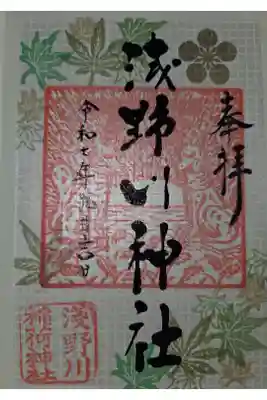 奉拝
浅野川神社
令和七年
浅野川
稲荷神社